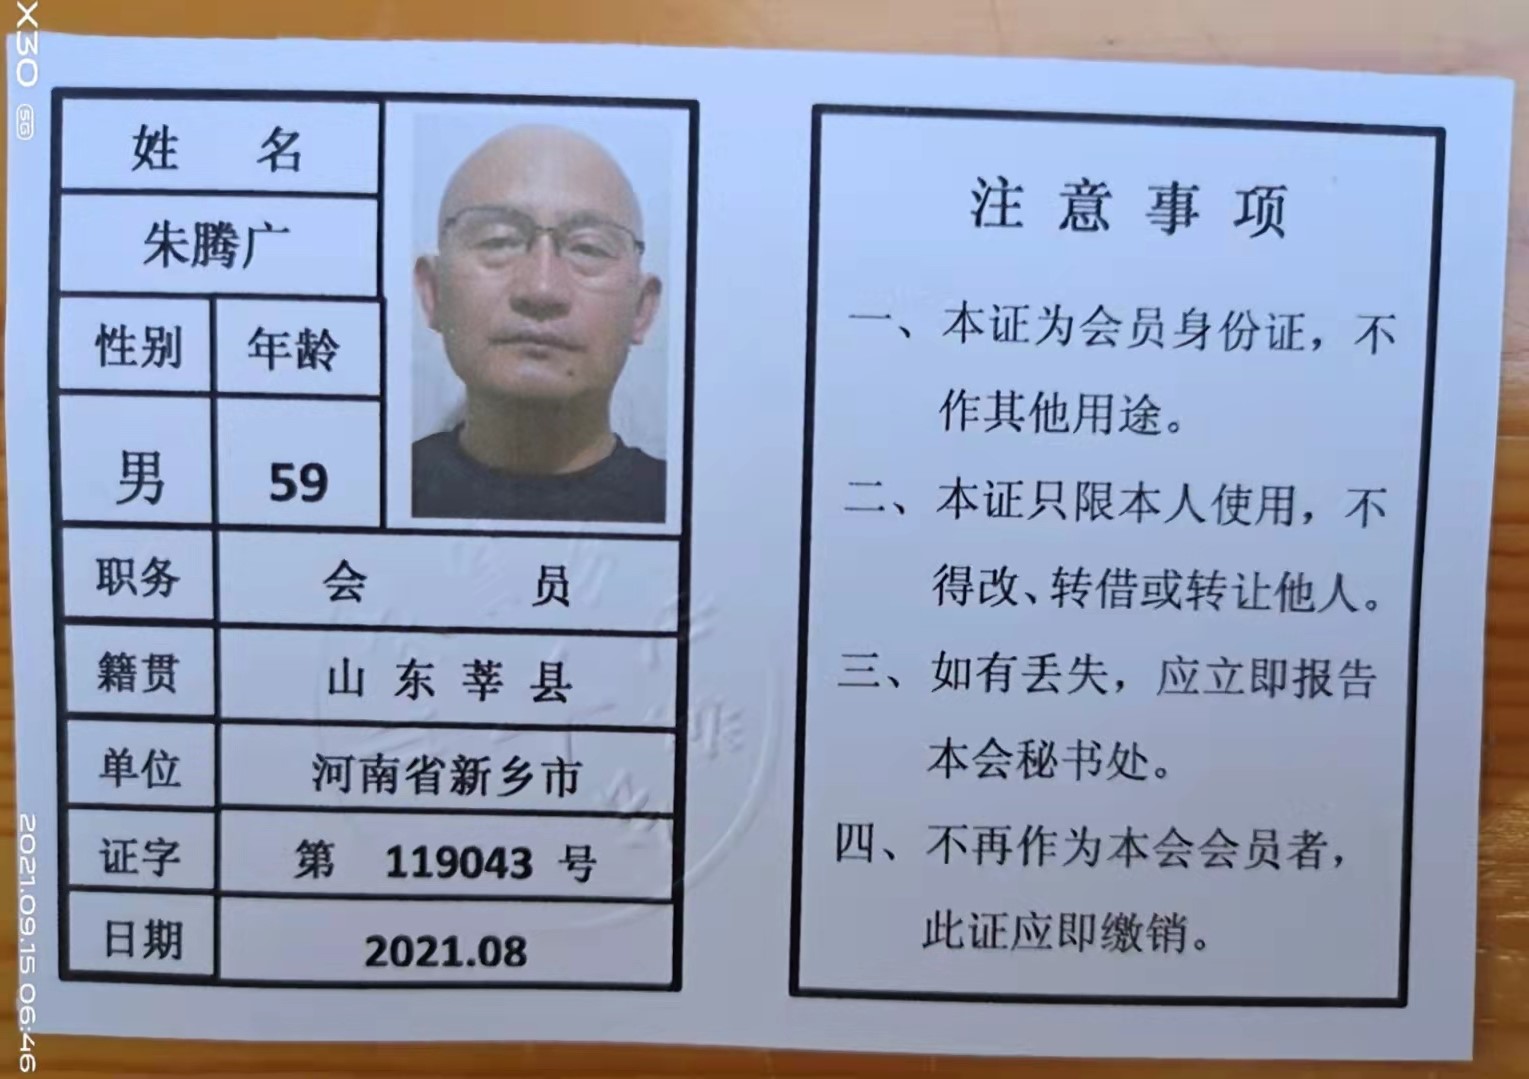 姓 名
朱腾广
性别 年龄
男 59
职务 会 员
籍贯 山东莘县
单位 河南省新乡市
证字 第 119043 号
日期 2021.08
注意事项
一、本证为会员身份证，不
作其他用途。
二、本证只限本人使用，不
得改、转借或转让他人。
三、如有丢失，应立即报告
本会秘书处。
四、不再作为本会会员者，
此证应即缴销。
X30 5G
2021.09.15 06:46